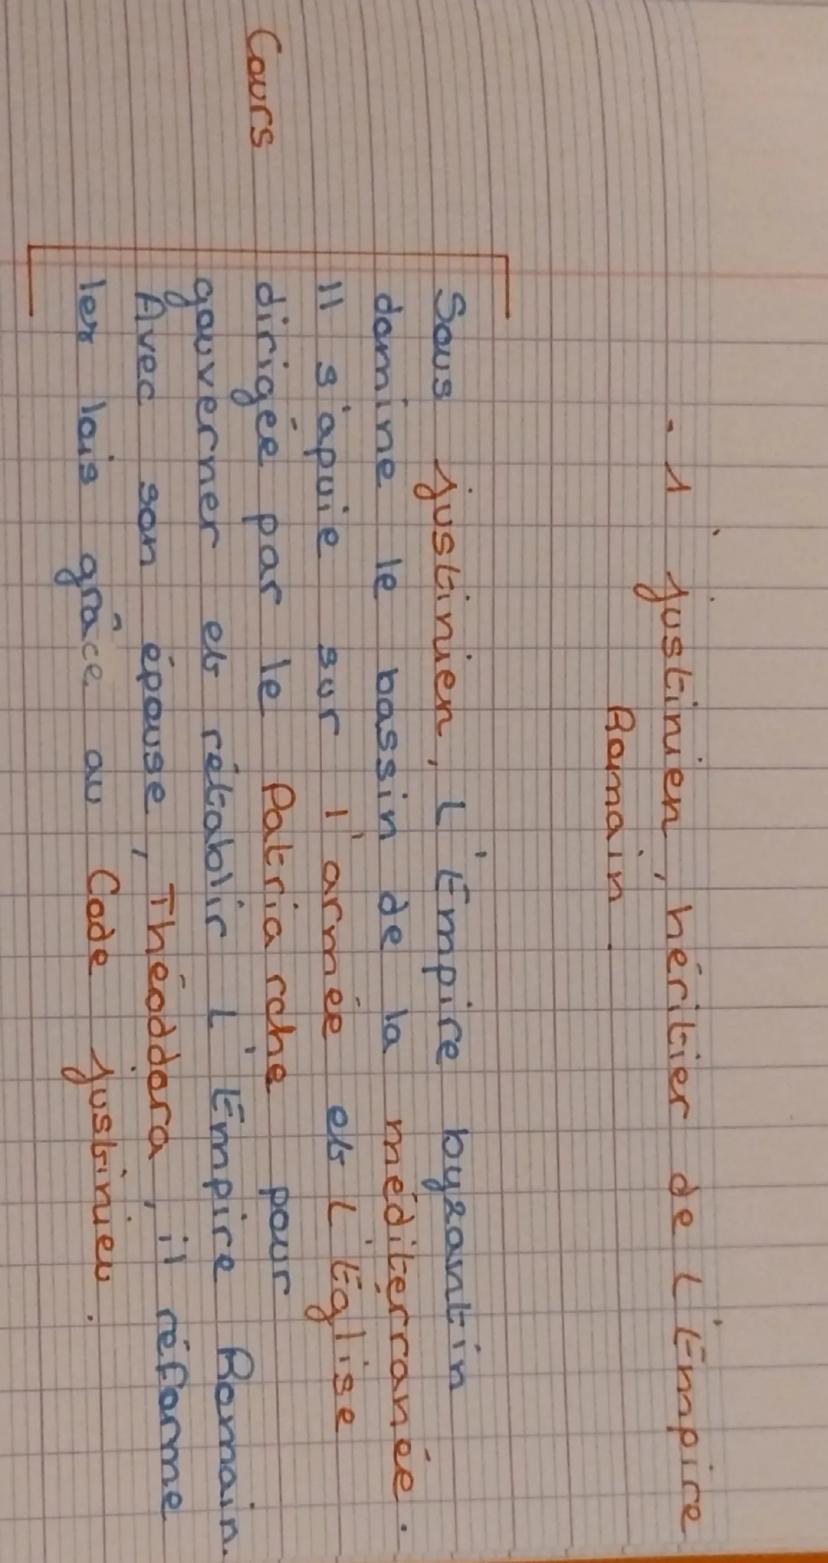 - 1 justinien, héritier de L'Empire
Romain.
Cours
Sous justinien, L'Empire byzantin
domine le bassin de la méditerranée.
Il s'apuie sur l'armée et L'Eglise
dirigée par le Patriarche pour
gouverner et rétablir L'Empire Romain.
Avec son épouse, Théoddora, il réforme
les lois grâce au Code justinien.